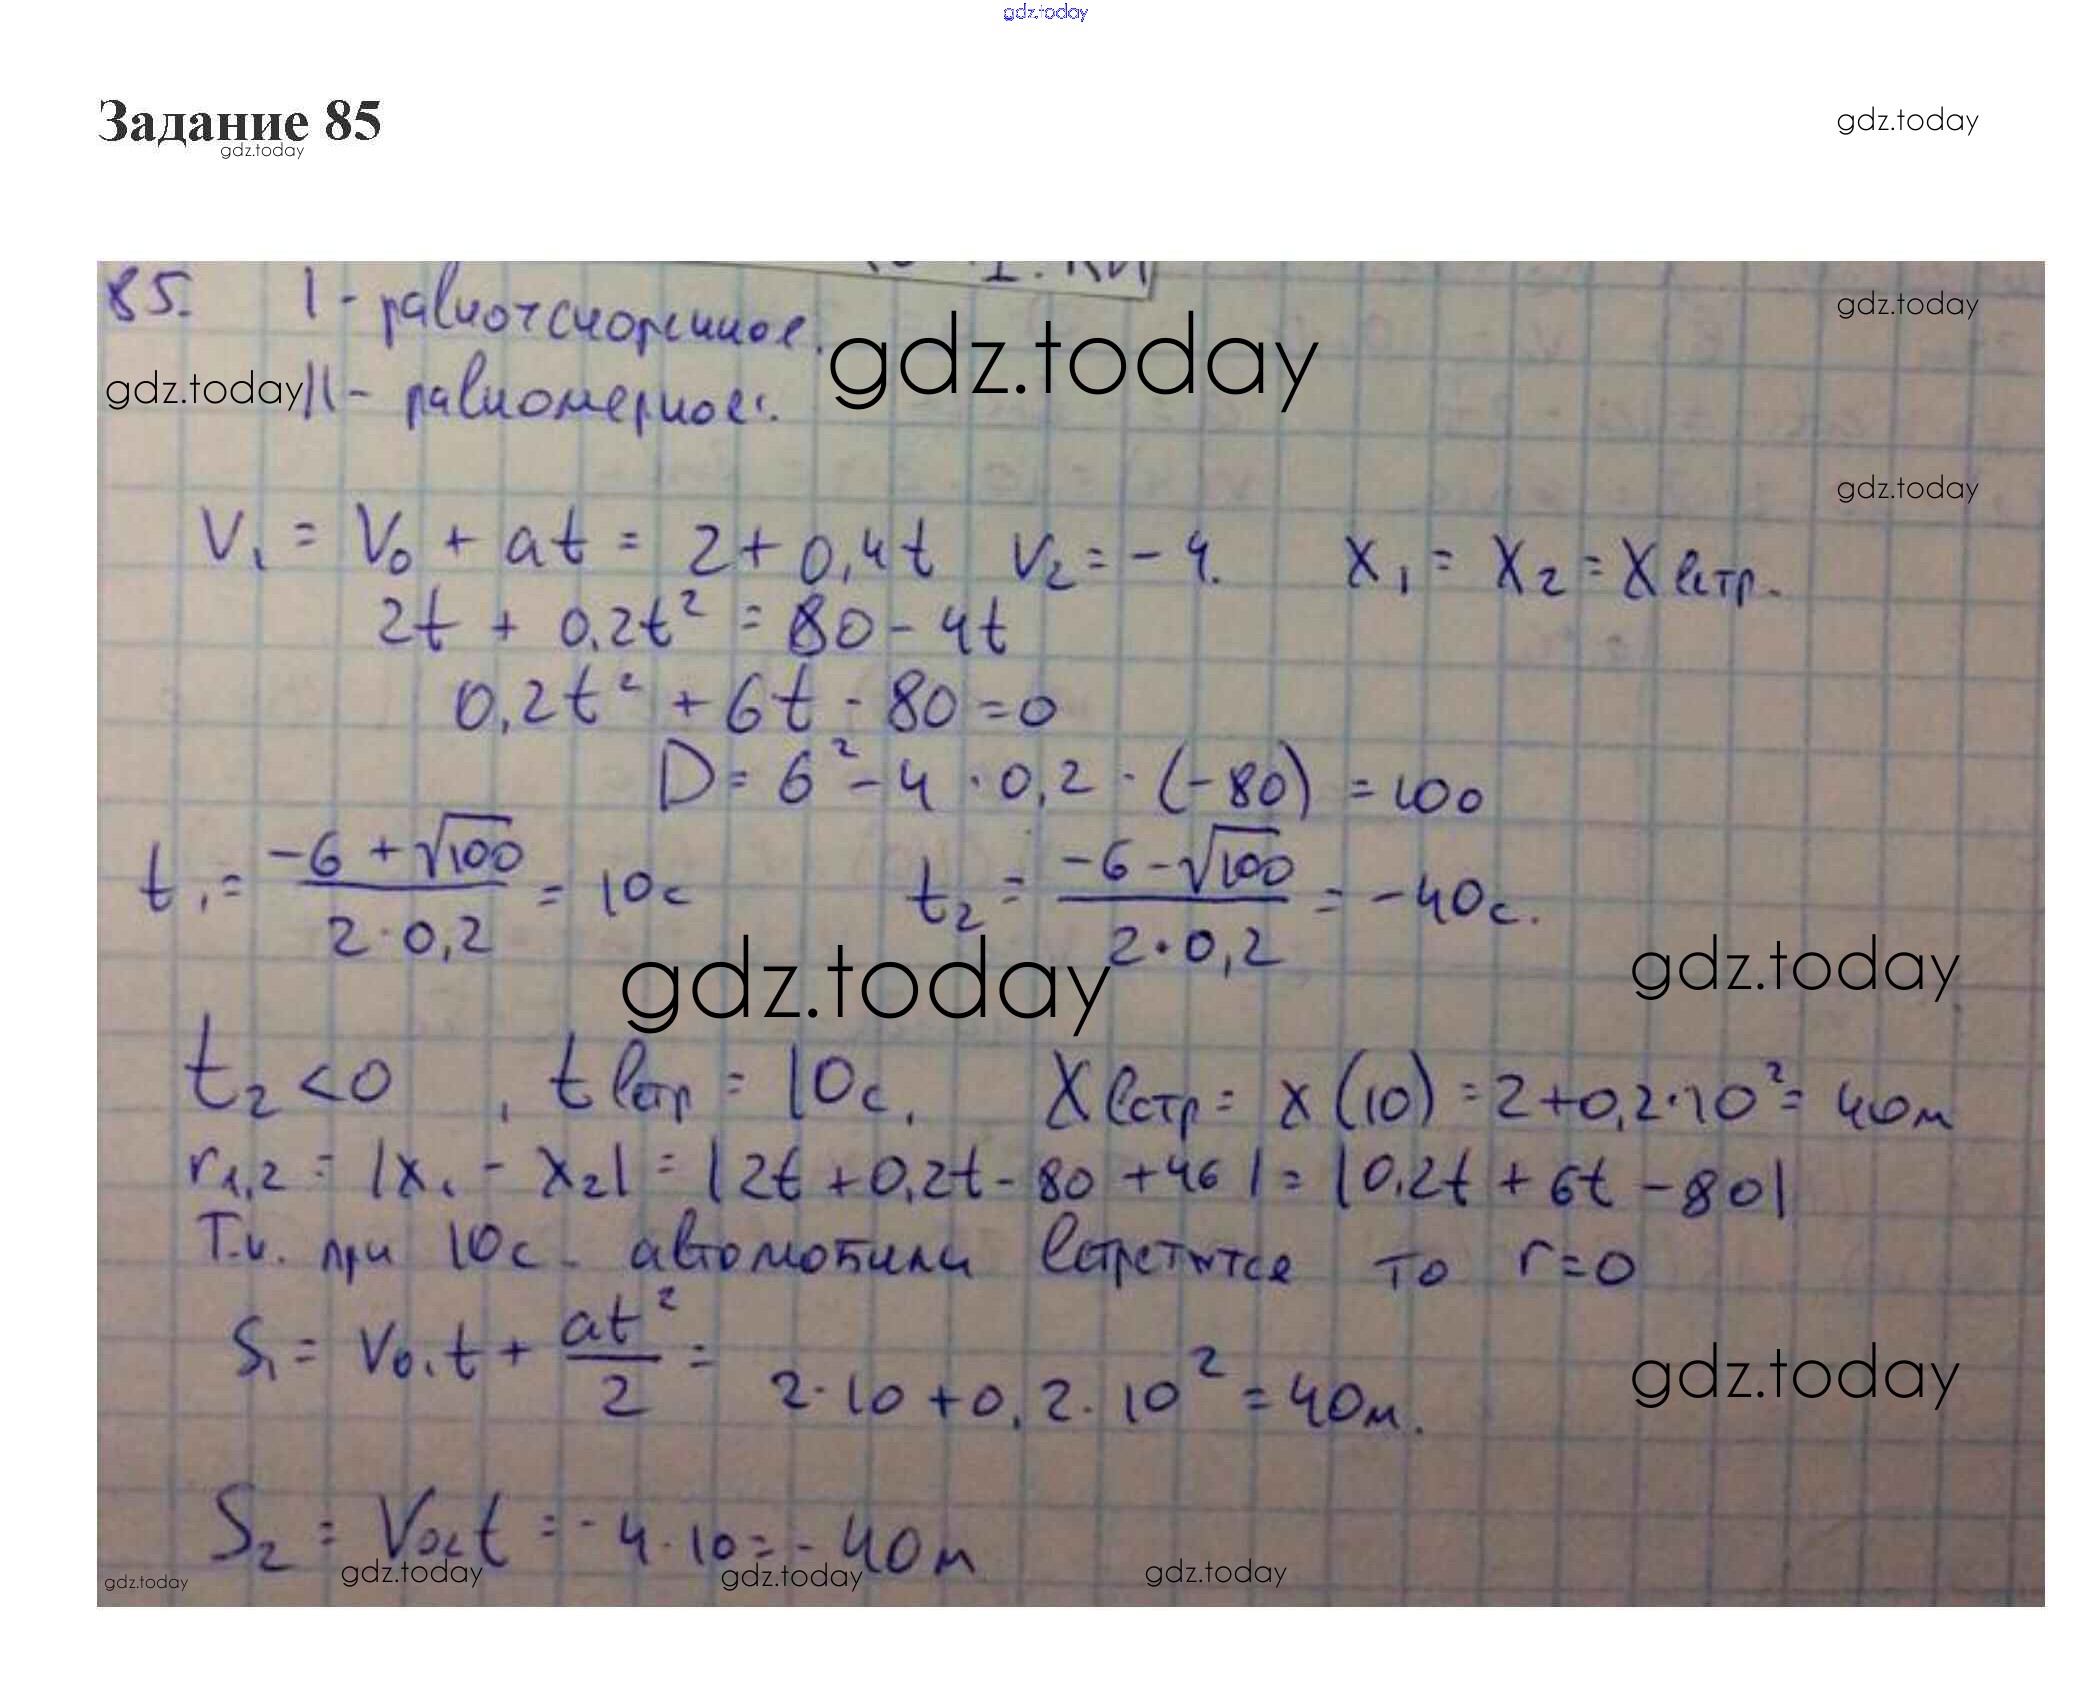 gdz.today
Задание 85
gdz.today
gdz.today
85. I - равноускоренное.
gdz.today
gdz.today
gdz.today II - равномерное.
gdz.today
V₁ = V₀ + at = 2 + 0,4t V₂ = -4. X₁ = X₂ = Xвстр.
2t + 0.2t² = 80 - 4t
0,2t² + 6t - 80 = 0
D = 6² - 4 · 0,2 · (-80) = 100
t₁ = (-6 + √100)/(2·0,2) = 10с t₂ = (-6 - √100)/(2·0,2) = -40с.
gdz.today
gdz.today
t₂ < 0 , tвстр = 10с. Xвстр = x(10) = 2+0,2·10² = 40м
r₁,₂ = |x₁ - x₂| = |2t + 0,2t - 80 + 46| = |0,2t + 6t - 80|
Т.к. при 10с - автомобили встретятся то r=0
S₁ = V₀₁t + at²/2 = 2·10 + 0,2·10² = 40м.
gdz.today
S₂ = V₀₂t = -4·10 = -40м
gdz.today
gdz.today
gdz.today
gdz.today